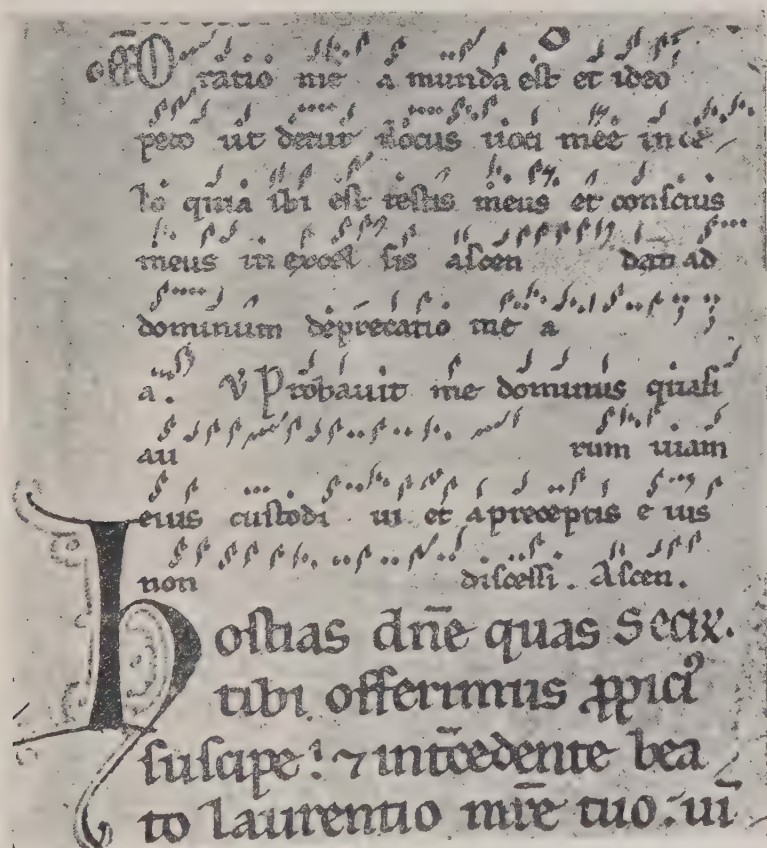 off̄ Oratio me a munda est et ideo
peto ut detur locus uoci mee in ce
lo quia ibi est testis meus et conscius
meus in excel sis ascen dat ad
dominum deprecatio me a
a. V Probauit me dominus quasi
au rum uiam
eius custodi ui et a preceptis e ius
non discessi. Ascen.
Hostias dn̄e quas Secr̄.
tibi offerimus
suscipe: ⁊ int̄cedente bea
to laurentio mr̄e tuo. ui